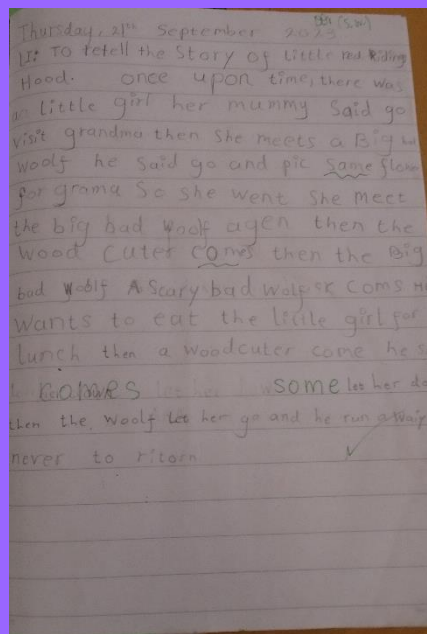 Thursday, 21th September 2023
LI: To retell the Story of little red Riding
Hood. once upon time, there was
a little girl her mummy Said go
visit grandma then She meets a Big
woolf he Said go and pic Same flower
for grama So she went She meet
the big bad woolf agen then the
wood cuter comes then the Big
bad woolf A Scary bad wolf coms
wants to eat the little girl for
lunch then a woodcuter came he
comes some let her
then the woolf let her go and he run a waiy
never to ritorn